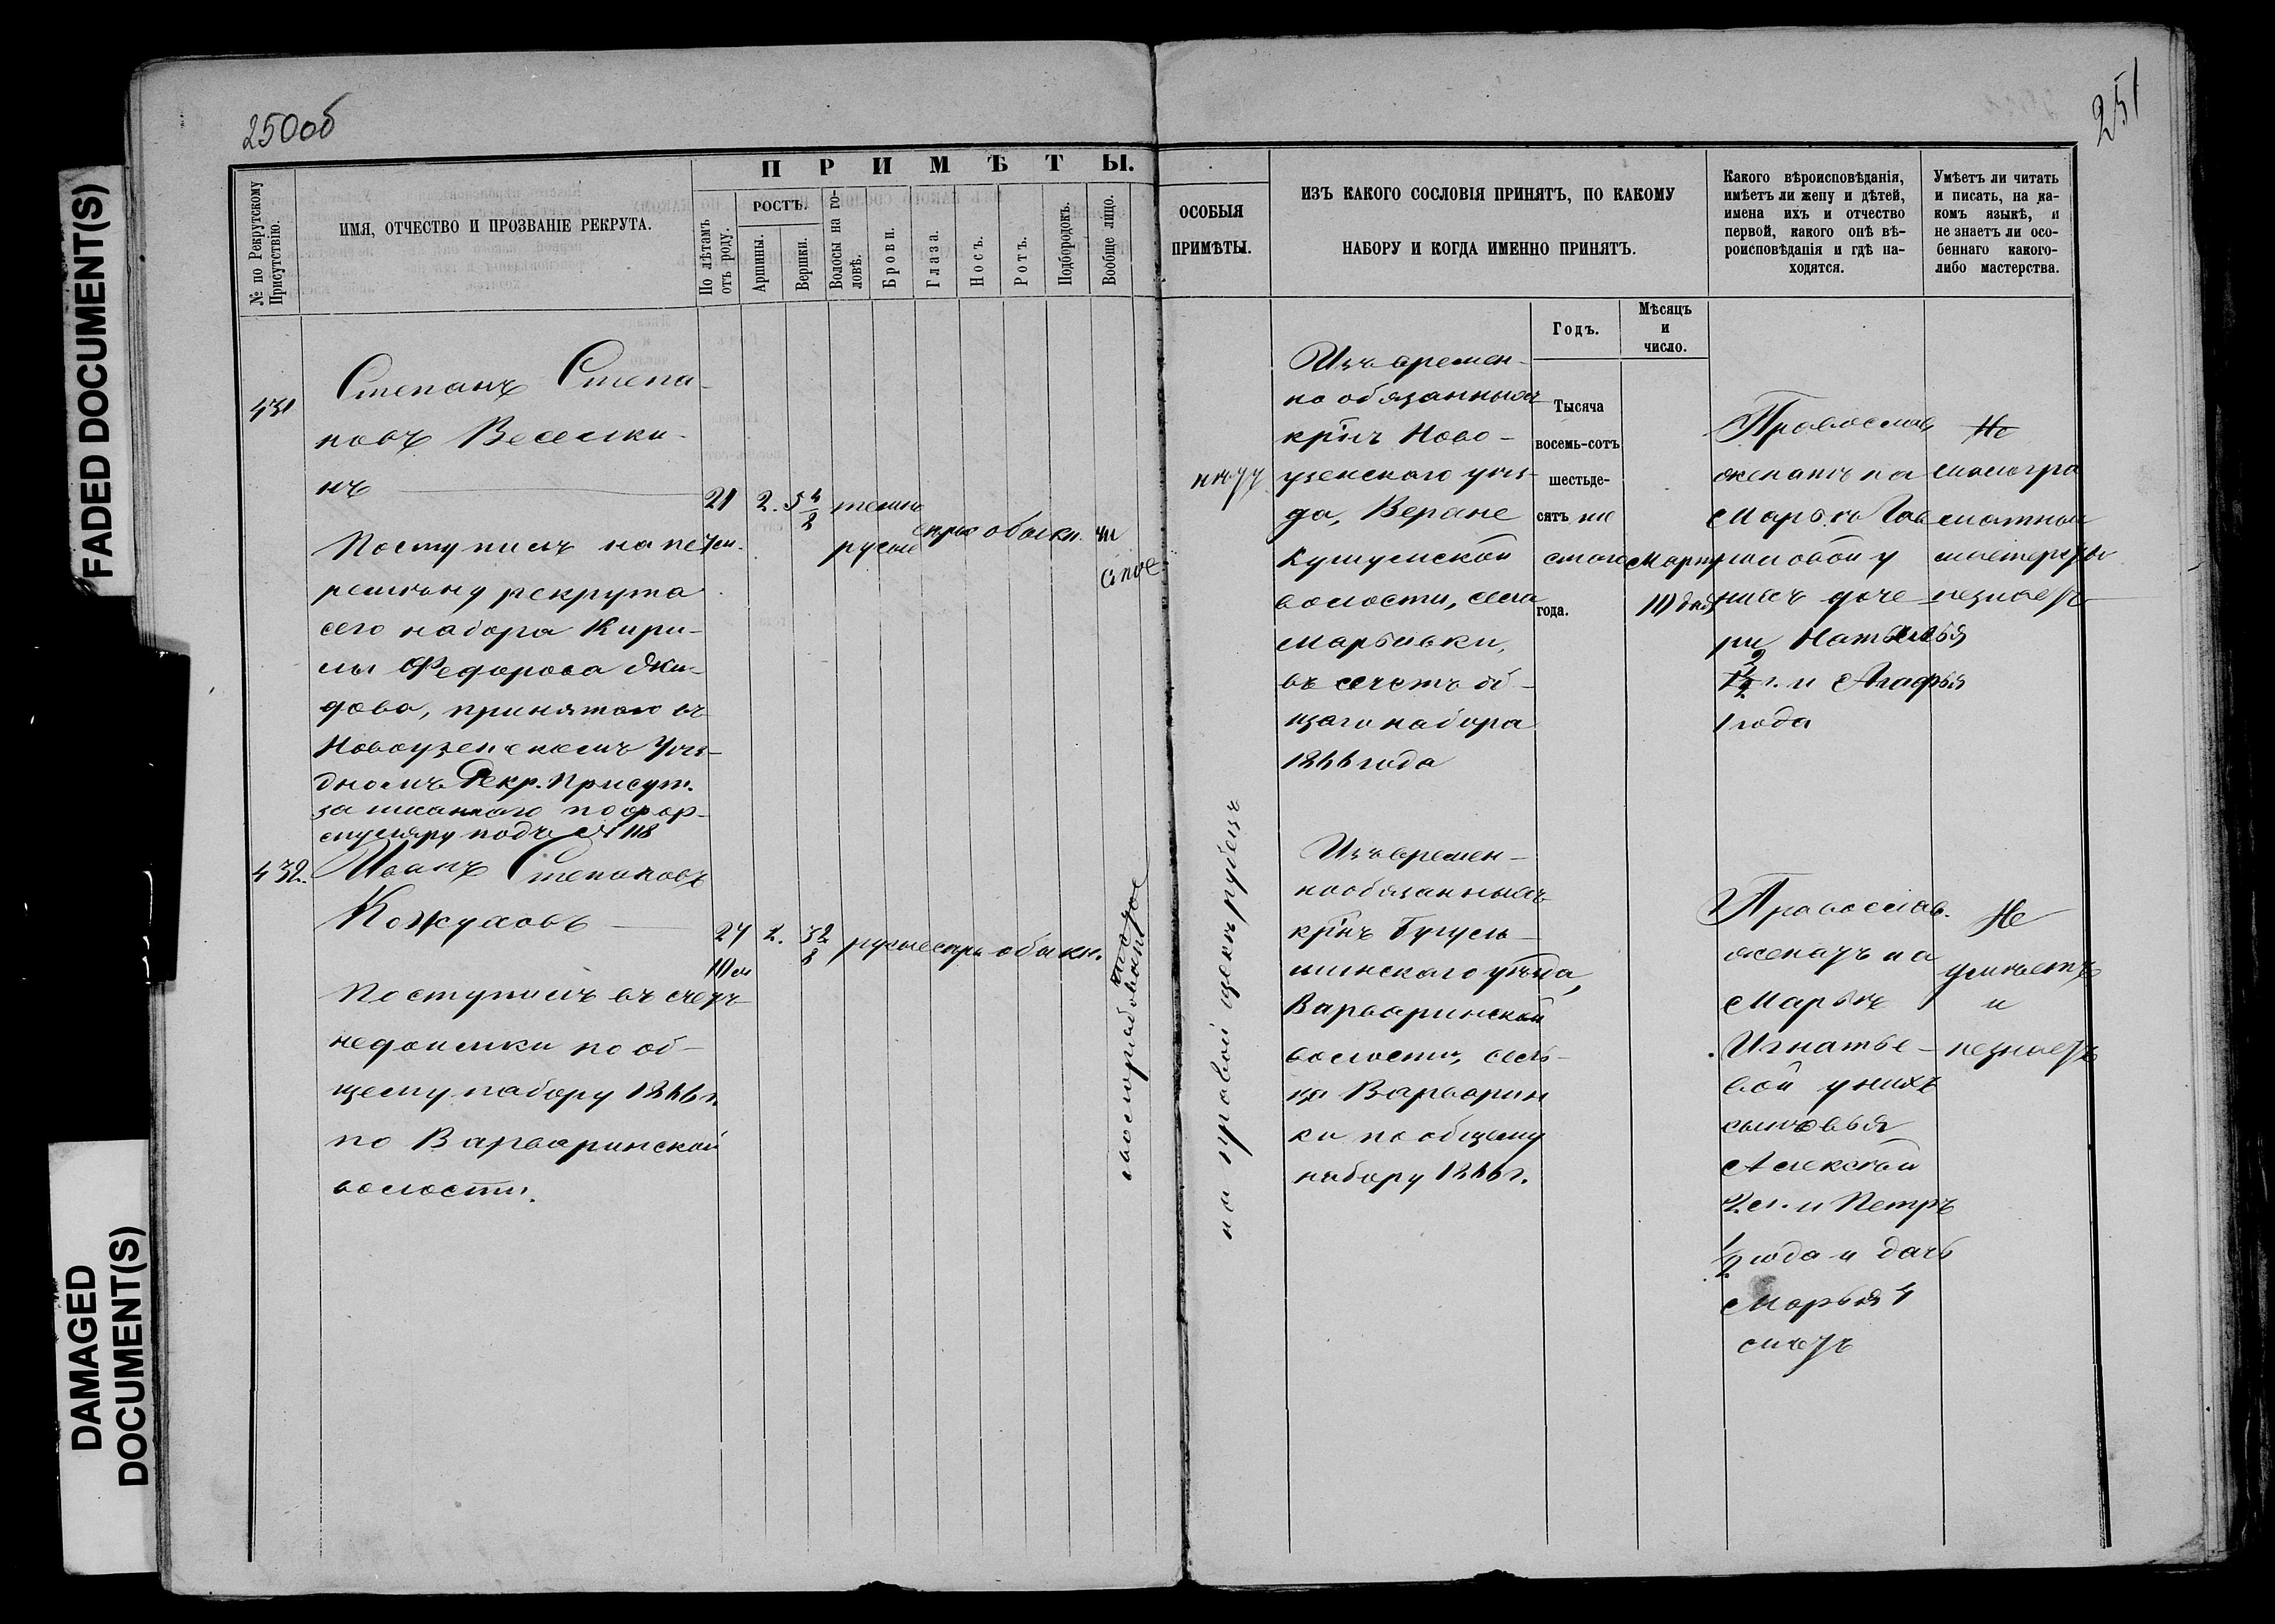 FADED DOCUMENT(S)
DAMAGED
DOCUMENT(S)
250об
251
№ по Рекрутскому
Присутствію.
ИМЯ, ОТЧЕСТВО И ПРОЗВАНІЕ РЕКРУТА.
ПРИМѢТЫ.
По лѣтамъ
отъ роду.
РОСТЪ.
Аршины.
Вершки.
Волосы на го-
ловѣ.
Брови.
Глаза.
Носъ.
Ротъ.
Подбородокъ.
Вообще лицо.
ОСОБЫЯ
ПРИМѢТЫ.
ИЗЪ КАКОГО СОСЛОВІЯ ПРИНЯТЪ, ПО КАКОМУ
НАБОРУ И КОГДА ИМЕННО ПРИНЯТЪ.
Какого вѣроисповѣданія,
имѣетъ ли жену и дѣтей,
имена ихъ и отчество
первой, какого онѣ вѣ-
роисповѣданія и гдѣ на-
ходятся.
Умѣетъ ли читать
и писать, на ка-
комъ языкѣ, и
не знаетъ ли осо-
беннаго какого-
либо мастерства.
Годъ.
Мѣсяцъ
и
число.
431
Степанъ Степа-
новъ Веселки-
нъ
Поступилъ на пе
ремѣну рекрута
сего набора Кири-
лы Федорова Жи-
дова, принятаго въ
Новоузенскомъ Уѣз-
дномъ Рекр. Присут.
записаннаго по фор-
муляру подъ № 118
21
2. 5 4/8
темно
русые
сѣрые
обыкн.
чи
стое
нѣтъ
Изъ времен-
но обязанныхъ
кр͠нъ Ново-
узенскаго уѣз-
да, Верхне
Кушумской
волости, села
Марьевки,
въ счетъ об-
щаго набора
1866 года
Тысяча
восемь-сотъ
шестьде-
сятъ
года.
Марта
10 дня
Православ
женатъ на
Марьѣ Гав
риловой у
нихъ доче
ри Наталья
2 г. и Агафья
1 года
Не
малогра
мотный
мастерства
незнаетъ
432.
Иванъ Степановъ
Кожуховъ
Поступилъ въ счетъ
недоимки по об-
щему набору 1866 г.
по Варваринской
волости.
24
10 м
2. 3 2/8
русые
сѣры
обыкн.
чистое
на правой щекѣ рубецъ
Изъ времен-
нообязанныхъ
кр͠нъ Бугуль-
минскаго уѣзда,
Варваринской
волости, сель-
ца Варварин
ки по общему
набору 1866 г.
Православ.
женатъ на
Марьѣ
Игнатье-
вой у нихъ
сыновья
Алексѣй
2 л. и Петръ
1/2 года и дочь
Марья 4
лѣтъ
Не
умѣетъ
и
незнаетъ